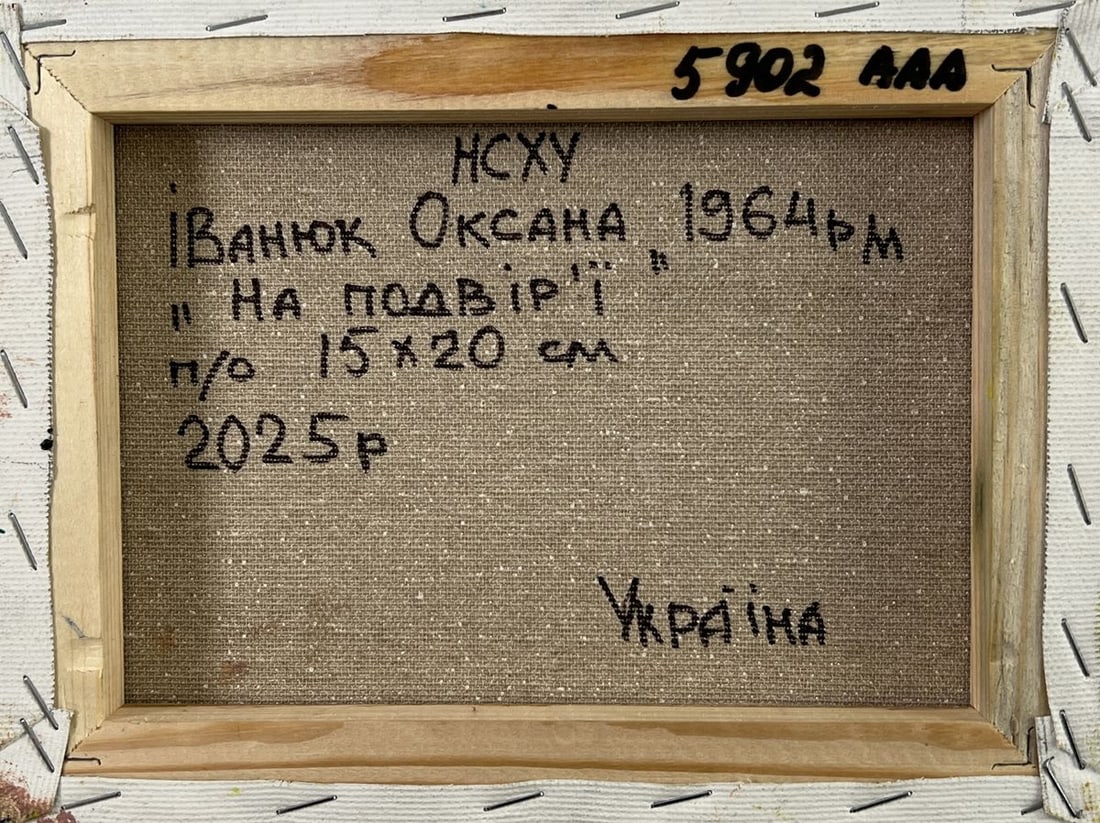 5902 AAA
НСХУ
Іванюк Оксана 1964рм
„ На подвір'ї "
п/о 15x20 см
2025р
Україна